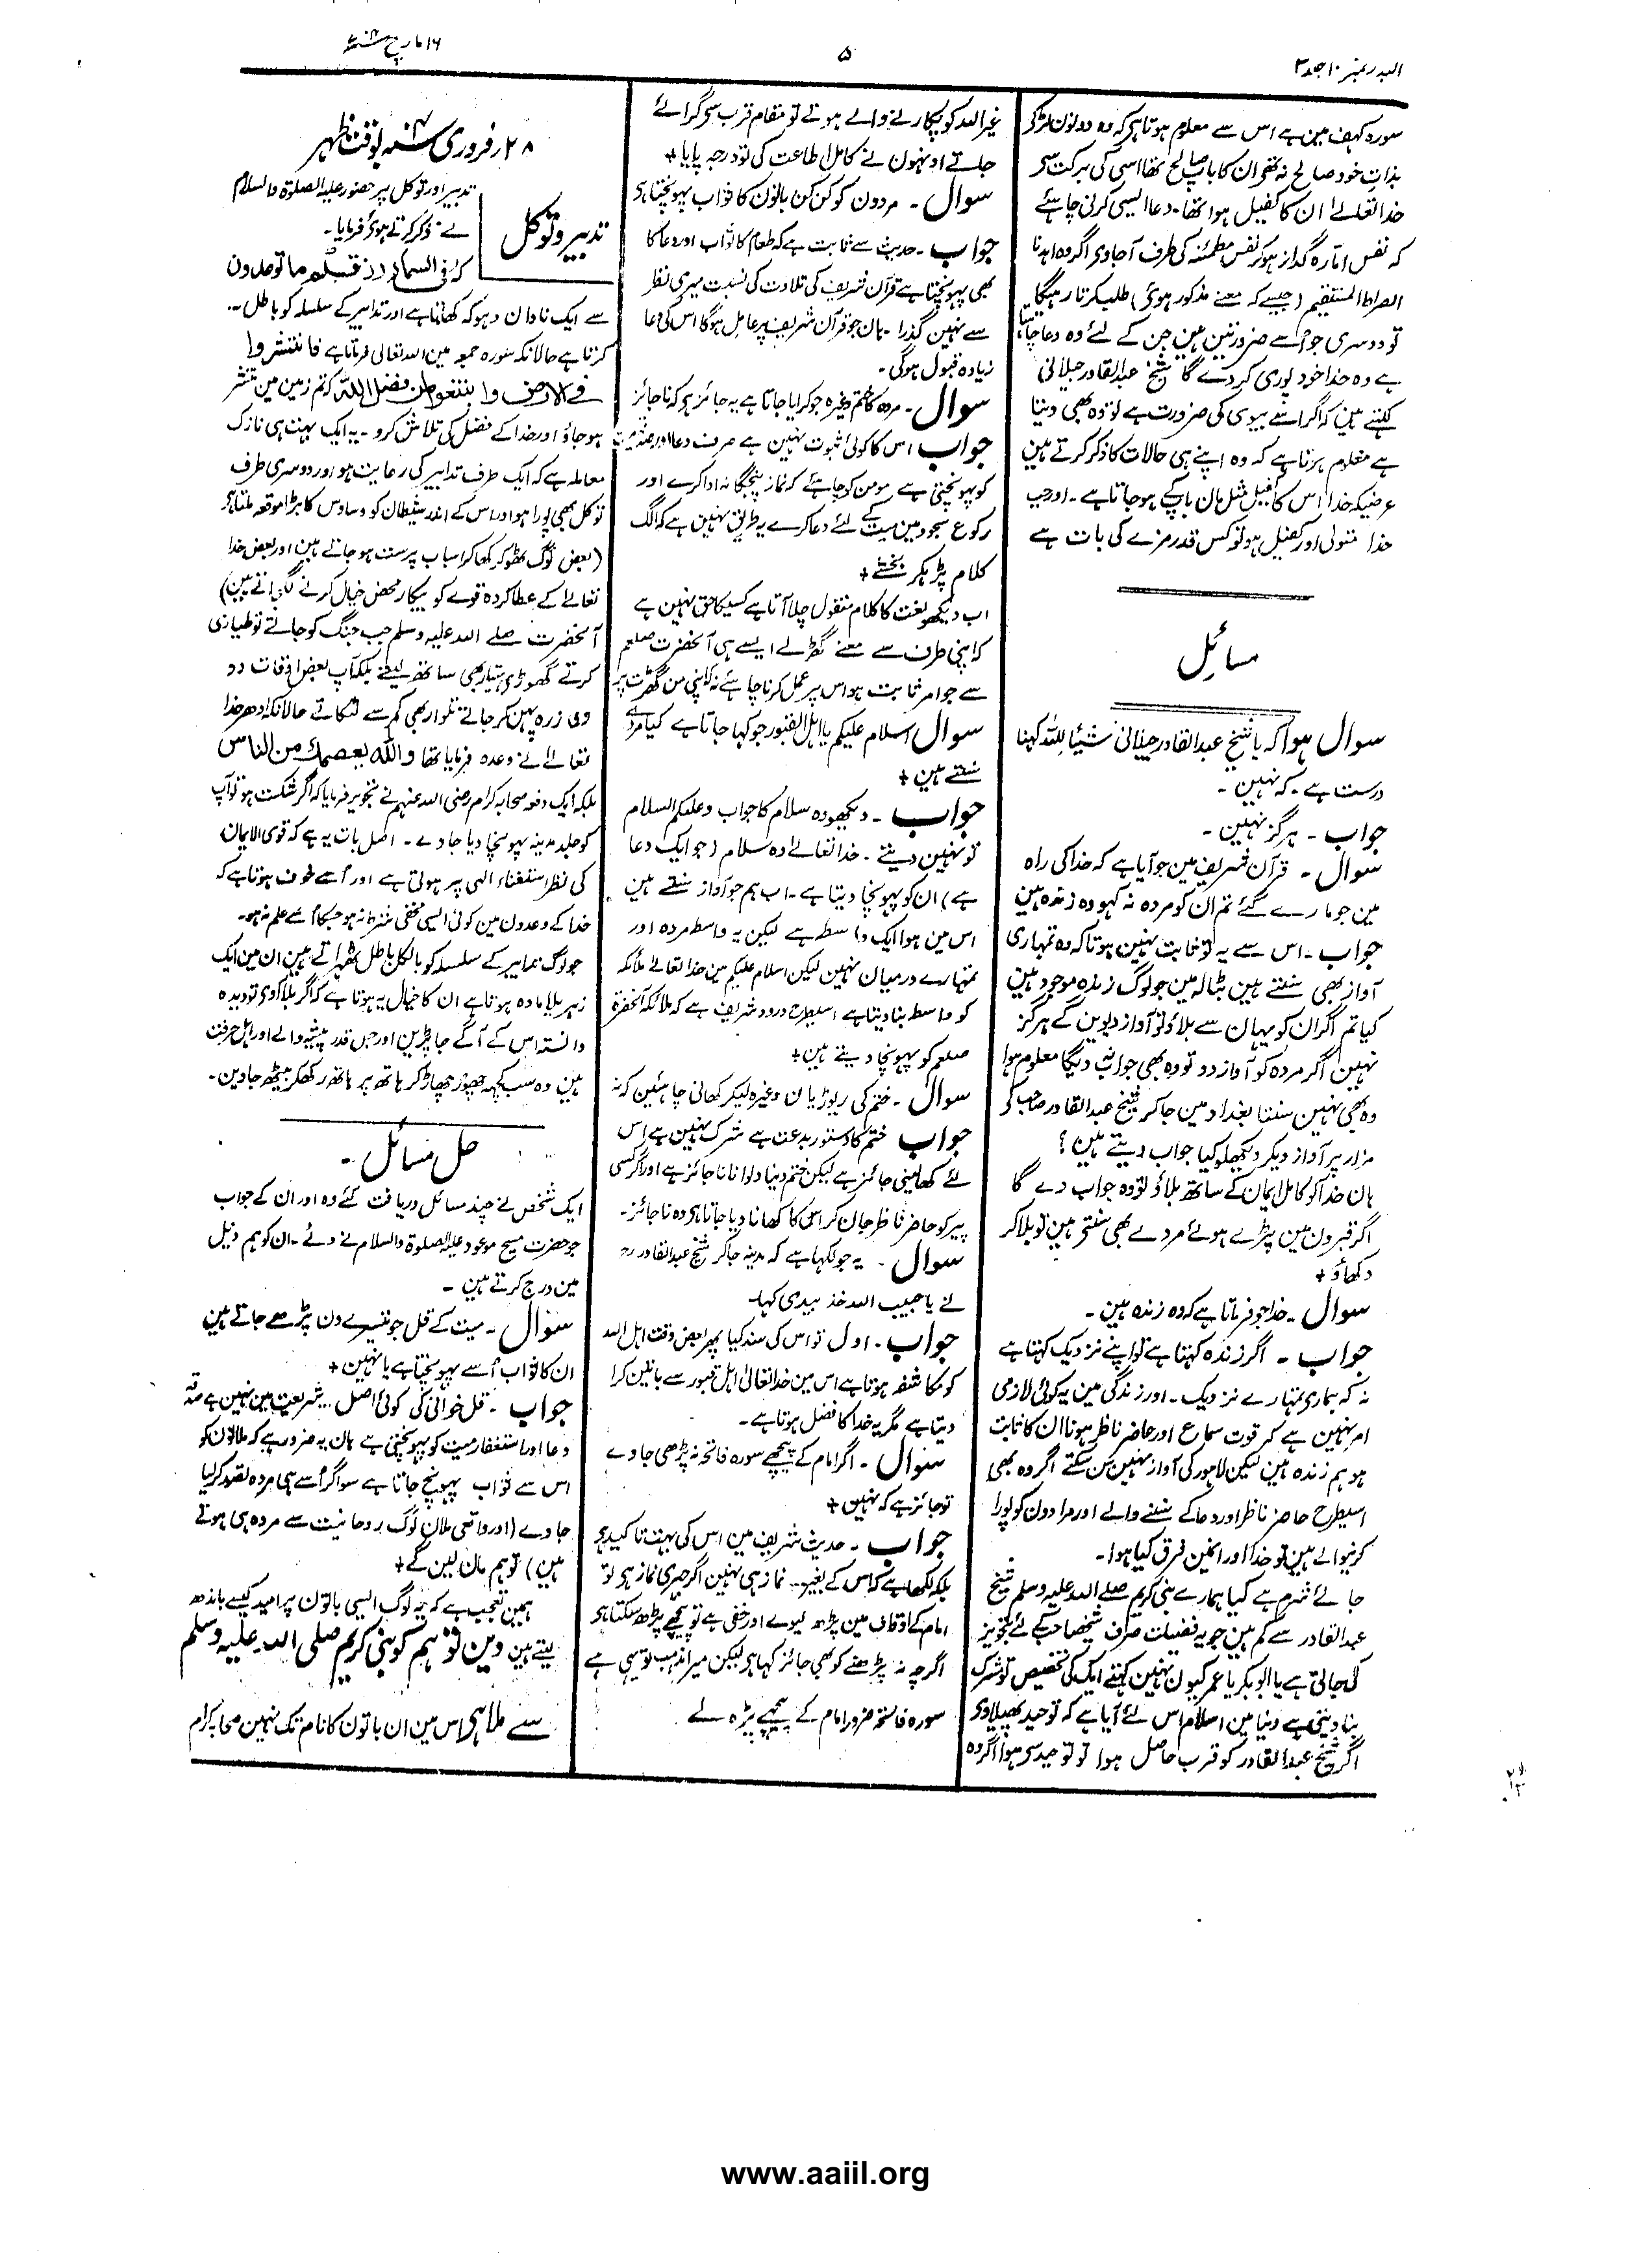 البدر نمبر ۱۰ جلد ۳
۵
۱۶ مارچ
سورہ کہف مین ہے اس سے معلوم ہوتا ہی کہ وہ دونون لڑکے
بذات خود صالح نہ تھے ان کا باپ صالح تھا اسی کی برکت سی
خدا تعالےٰ ان کا کفیل ہوا تھا۔ دعا ایسی کرنی چاہئے
کہ نفس امارہ گداز ہو کر نفس مطمئنہ کی طرف آجاوی اگر وہ اہدنا
الصراط المستقیم (جیسے کہ معنے مذکور ہوئی) طلب کرتا رہیگا
تو دوسری جو اُسے ضرورتین ہین جن کے لئے وہ دعا چاہتا
ہے وہ خدا خود پوری کر دے گا شیخ عبدالقادر جیلانی
کہتے ہین کہ اگر اسے بیوی کی ضرورت ہے تو وہ بھی دیتا
ہے معلوم ہوتا ہے کہ وہ اپنے ہی حالات کا ذکر کرتے ہین
غرضیکہ خدا اس کا کفیل مثل مان باپ کے ہو جاتا ہے۔ اور جب
خدا متولی اور کفیل ہو تو کس قدر مزے کی بات ہے
مسائل
سوال ہوا کہ یا شیخ عبدالقادر جیلانی شیئاً للہ کہنا
درست ہے۔ کہ نہین۔
جواب۔ ہرگز نہین۔
سوال۔ قرآن شریف مین جو آیا ہے کہ خدا کی راہ
مین جو مارے گئے تم ان کو مردہ نہ کہو وہ زندہ ہین
جواب۔ اس سے یہ تو ثابت نہین ہوتا کہ وہ تمہاری
آواز بھی سنتے ہین بٹالہ مین جو لوگ زندہ موجود ہین
کیا تم اگر ان کو یہان سے بلاؤ تو آواز دیوین گے ہرگز
نہین اگر مردہ کو آواز دو تو وہ بھی جواب نہ دیگا معلوم ہوا
وہ بھی نہین سنتا بغداد مین جا کر شیخ عبدالقادر صاحب کو
مزار پر آواز دیکر دیکھ لو کیا جواب دیتے ہین؟
ہان خدا کو کامل ایمان کے ساتھ بلاؤ تو وہ جواب دے گا
اگر قبرون مین پڑے ہوئے مردے بھی سنتے ہین تو بلا کر
دکھاؤ +
سوال۔ خدا جو فرماتا ہے کہ وہ زندہ ہین۔
جواب۔ اگر زندہ کہتا ہے تو اپنے نزدیک کہتا ہے
نہ کہ ہماری تمہارے نزدیک۔ اور زندگی مین یہ کوئی لازمی
امر نہین ہے کہ قوت سماع اور حاضر ناظر ہونا ان کا ثابت
ہو ہم زندہ ہین لیکن لاہور کی آواز نہین سن سکتے اگر وہ بھی
اسیطرح حاضر ناظر اور دعا کے سننے والے اور مرادون کو پورا
کرنیوالے ہین تو خدا اور انمین فرق کیا ہوا۔
جائے شرم ہے کیا ہمارے نبی کریم صلے اللہ علیہ وسلم شیخ
عبدالقادر سے کم ہین جو یہ فضیلت صرف شیخ صاحب کے لئے تجویز
کی جاتی ہے یا ابوبکر یا عمر کیون نہین کہتے ایک کی تخصیص تو شرک
بنا دیتی ہے دنیا مین اسلام اس لئے آیا ہے کہ توحید پھیلاوی
اگر شیخ عبدالقادر کو قرب حاصل ہوا تو توحید سی ہوا اگر وہ
غیر اللہ کو پکارنے والے ہوتے تو مقام قرب سی گرائے
جاتے اونہون نے کامل اطاعت کی تو درجہ پایا +
سوال۔ مردون کو کن کن باتون کا ثواب پہونچتا ہی
جواب۔ حدیث سے ثابت ہے کہ طعام کا ثواب اور دعا کا
بھی پہونچتا ہے قرآن شریف کی تلاوت کی نسبت میری نظر
سے نہین گذرا۔ ہان جو قرآن شریف پر عامل ہوگا اس کی دعا
زیادہ قبول ہوگی۔
سوال۔ مردہ کا ختم وغیرہ جو کرایا جاتا ہے یہ جائز ہی کہ ناجائز
جواب اس کا کوئی ثبوت نہین ہے صرف دعا اور صدقہ میت
کو پہونچتی ہے مومن کو چاہئے کہ نماز پنجگانہ ادا کرے اور
رکوع سجود مین میت کے لئے دعا کرے یہ طریق نہین ہے کہ الگ
کلام پڑہکر بخشے +
اب دیکھو لغت کا کلام منقول چلا آتا ہے کسیکا حق نہین ہے
کہ اپنی طرف سے معنے گھڑ لے ایسے ہی آنحضرت صلعم
سے جو امر ثابت ہو اس پر عمل کرنا چاہئے نہ کہ اپنی من گھڑت پر
سوال اسلام علیکم یا اہل القبور جو کہا جاتا ہے کیا مردے
سنتے ہین +
جواب۔ دیکھو وہ سلام کا جواب وعلیکم السلام
تو نہین دیتے۔ خدا تعالےٰ وہ سلام (جو ایک دعا
ہے) ان کو پہونچا دیتا ہے۔ اب ہم جو آواز سنتے ہین
اس مین ہوا ایک واسطہ ہے لیکن یہ واسطہ مردہ اور
تمہارے درمیان نہین لیکن اسلام علیکم مین خدا تعالےٰ ملائکہ
کو واسطہ بنا دیتا ہے اسیطرح درود شریف ہے کہ ملائکہ آنحضرت
صلعم کو پہونچا دیتے ہین +
سوال۔ ختم کی ریوڑیان وغیرہ لیکر کھانی چاہئین کہ نہ
جواب ختم کا دستور بدعت ہے شرک نہین ہے اس
لئے کھا لینی جائز ہے لیکن ختم دینا دلوانا ناجائز ہے اور اگر کسی
پیر کو حاضر ناظر جان کر اس کا کھانا دیا جاتا ہی وہ ناجائز۔
سوال۔ یہ جو لکھا ہے کہ مدینہ جا کر شیخ عبدالقادر رح
نے یا حبیب اللہ خذ بیدی کہا۔
جواب۔ اول تو اس کی سند کیا پھر بعض وقت اہل اللہ
کو مکاشفہ ہوتا ہے اس مین خدا تعالیٰ اہل قبور سے باتین کرا
دیتا ہے مگر یہ خدا کا فضل ہوتا ہے۔
سوال۔ اگر امام کے پیچھے سورہ فاتحہ نہ پڑھی جاوے
تو جائز ہے کہ نہین +
جواب۔ حدیث شریف مین اس کی بہت تاکید ہی
بلکہ لکھا ہے کہ اس کے بغیر نماز ہی نہین اگر جہری نماز ہی تو
امام کے اوقاف مین پڑھ لیوے اور خفی ہے تو پیچھے پڑھ سکتا ہی
اگرچہ نہ پڑھنے کو بھی جائز کہا ہی لیکن میرا مذہب تو یہی ہے
سورہ فاتحہ ضرور امام کے پیچھے پڑہ لے
۲۸ فروری بوقت ظہر
تدبیر و توکل
تدبیر اور توکل پر حضور علیہ الصلوۃ والسلام
نے ذکر کرتے ہوئی فرمایا۔
کہ فی السماء رزقکم وما توعدون
سے ایک نادان دہوکہ کھاتا ہے اور تدابیر کے سلسلہ کو باطل۔
کرتا ہے حالانکہ سورہ جمعہ مین اللہ تعالیٰ فرماتا ہے فانتشروا
فی الارض وابتغوا من فضل اللہ کہ تم زمین مین منتشر
ہو جاؤ اور خدا کے فضل کی تلاش کرو۔ یہ ایک بہت ہی نازک
معاملہ ہے کہ ایک طرف تدابیر کی رعایت ہو اور دوسری طرف
توکل بھی پورا ہو اور اس کے اندر شیطان کو وساوس کا بڑا موقعہ ملتا ہی
(بعض لوگ ٹھوکر کھا کر اسباب پرست ہو جاتے ہین اور بعض خدا
تعالےٰ کے عطا کردہ قوےٰ کو بیکار محض خیال کرنے لگ جاتے ہین)
آنحضرت صلے اللہ علیہ وسلم جب جنگ کو جاتے تو طیاری
کرتے گھوڑی ہتیار بھی ساتھ لیتے بلکہ آپ بعض اوقات دو
دو زرہ پہن کر جاتے تلوار بھی کمر سے لٹکاتے حالانکہ ادھر خدا
تعالےٰ نے وعدہ فرمایا تھا واللہ یعصمک من الناس
بلکہ ایک دفعہ صحابہ کرام رضی اللہ عنہم نے تجویز فرمایا کہ اگر شکست ہو تو آپ
کو جلد مدینہ پہونچا دیا جاوے۔ اصل بات یہ ہے کہ قوی الایمان
کی نظر استغناء الٰہی پر ہوتی ہے اور اُسے خوف ہوتا ہے کہ
خدا کے وعدون مین کوئی ایسی مخفی شرط نہ ہو جسکا اُسے علم نہ ہو۔
جو لوگ تدابیر کے سلسلہ کو بالکل باطل ٹھہراتے ہین ان مین ایک
زہریلا مادہ ہوتا ہے ان کا خیال یہ ہوتا ہے کہ اگر بلا آوی تو دیدہ
دانستہ اس کے آگے جا پڑین اور جس قدر پیشہ والے اور اہل حرفت
ہین وہ سب کچھ چھوڑ چھاڑ کر ہاتھ پر ہاتھ رکھکر بیٹھ جاوین۔
حل مسائل۔
ایک شخص نے چند مسائل دریافت کئے وہ اور ان کے جواب
جو حضرت مسیح موعود علیہ الصلوۃ والسلام نے دئے۔ ان کو ہم ذیل
مین درج کرتے ہین۔
سوال۔ میت کے قل جو تیسرے دن پڑھے جاتے ہین
ان کا ثواب اُسے پہونچتا ہے یا نہین +
جواب۔ قل خوانی کی کوئی اصل شریعت مین نہین ہے صدقہ
دعا اور استغفار میت کو پہونچتی ہے ہان یہ ضرور ہے کہ ملانون کو
اس سے ثواب پہونچ جاتا ہے سو اگر اُسے ہی مردہ تصور کر لیا
جاوے (اور واقعی ملان لوگ روحانیت سے مردہ ہی ہوتے
ہین) تو ہم مان لین گے +
ہمین تعجب ہے کہ یہ لوگ ایسی باتون پر امید کیسے باندھ
لیتے ہین دین تو ہم کو نبی کریم صلی اللہ علیہ وسلم
سے ملا ہی اس مین ان باتون کا نام تک نہین صحابہ کرام
www.aaiil.org